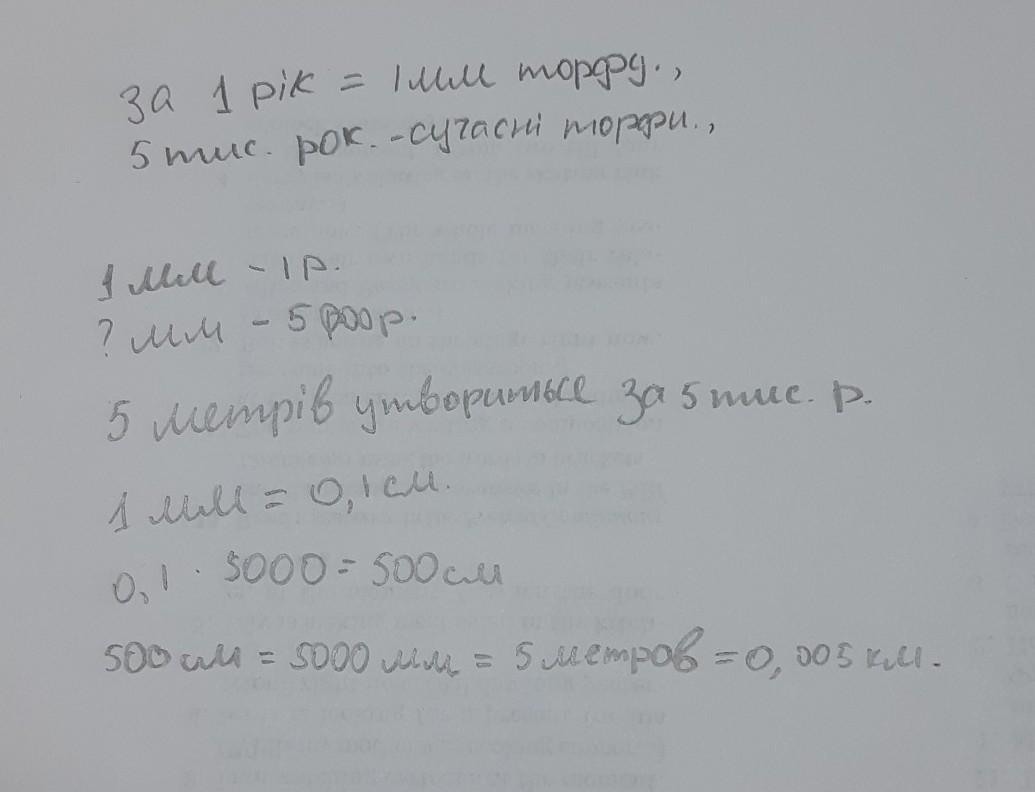 за 1 рік = 1мм торфу.,
5 тис. рок. - сучасні торфи.,
1 мм - 1 р.
? мм - 5 000 р.
5 метрів утвориться за 5 тис. р.
1 мм = 0,1 см.
0,1 · 5000 = 500 см
500 см = 5000 мм = 5 метров = 0,005 км.